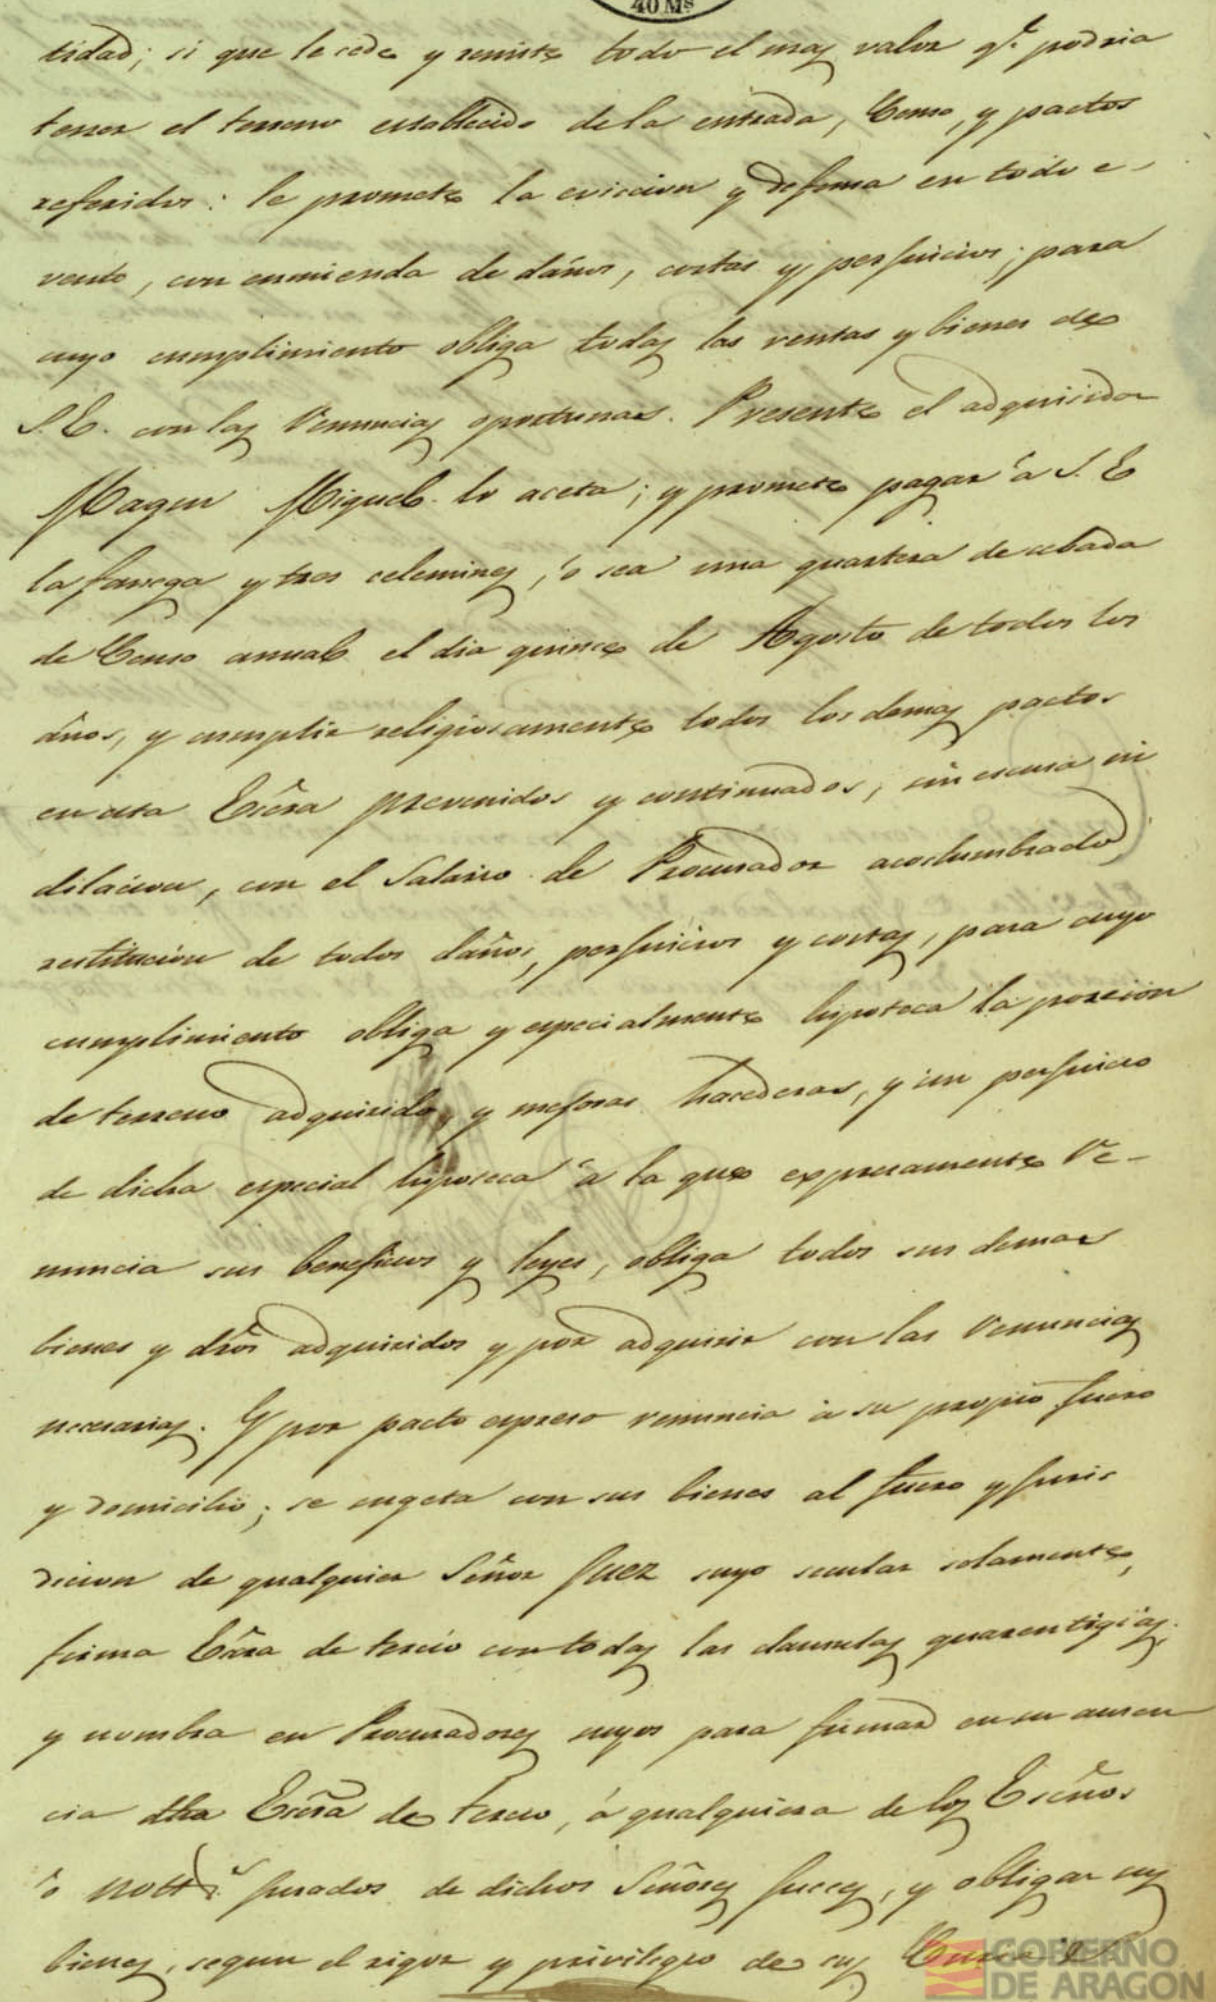 40 Ms
tidad; si que le cede y remite todo el mas valor qe. podria
tener el terreno establecido de la entrada, Censo, y pactos
referidos: le promete la eviccion y defensa en todo e-
vento, con enmienda de daños, costas y perjuicios; para
cuyo cumplimiento obliga todas las rentas y bienes de
S. E. con las Renuncias oportunas. Presente el adquisidor
Magin Miquel lo aceta; y promete pagar á S. E
la fanega y tres celemines, ó sea una quartera de cebada
de Censo annual el dia quince de Agosto de todos los
años, y cumplir religiosamente todos los demas pactos
en esta Escra prevenidos y continuados, sin escusa ni
dilacion, con el Salario de Procurador acostumbrado,
restitucion de todos daños, perjuicios y costas, para cuyo
cumplimiento obliga y especialmente hipoteca la porcion
de terreno adquirido, y mejoras hacederas, y sin perjuicio
de dicha especial hipoteca á la que expresamente Re-
nuncia sus beneficios y leyes, obliga todos sus demas
bienes y dros adquiridos y por adquirir con las Renuncias
necesarias. Y por pacto espreso renuncia á su propio fuero
y domicilio; se sugeta con sus bienes al fuero y juris
dicion de qualquier Señor Juez suyo secular solamente,
firma Escra de tercio con todas las clausulas quarentigias;
y nombra en Procuradores suyos para firmar en su ausen
cia dha Escra de Tercio, á qualquiera de los Escños
ó nott.s jurados de dichos Señores Jueces, y obligar sus
bienes, segun el rigor y privilegio de sus
GOBIERNO
DE ARAGON